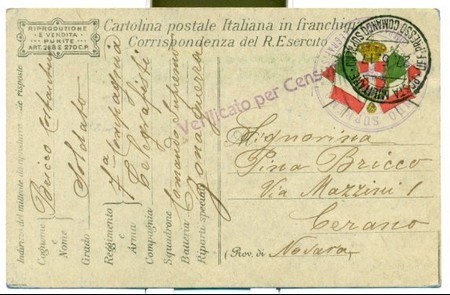 RIPRODUZIONE
E VENDITA
PUNITE
ART. 285 E 270 C.P.
Cartolina postale Italiana in franchigia
Corrispondenza del R. Esercito
Verificato per Censura
POSTA MILITARE
Indirizzo del mittente da riprodursi nelle risposte
Cognome e Nome Bricco Costantino
Grado Soldato
Reggimento 7ª Compagnia
Arma Telegrafisti
Compagnia
Squadrone Comando Supremo
Batteria
Riparti speciali Zona guerra
Signorina
Pina Bricco
Via Mazzini 1
Cerano
(Prov. di Novara)